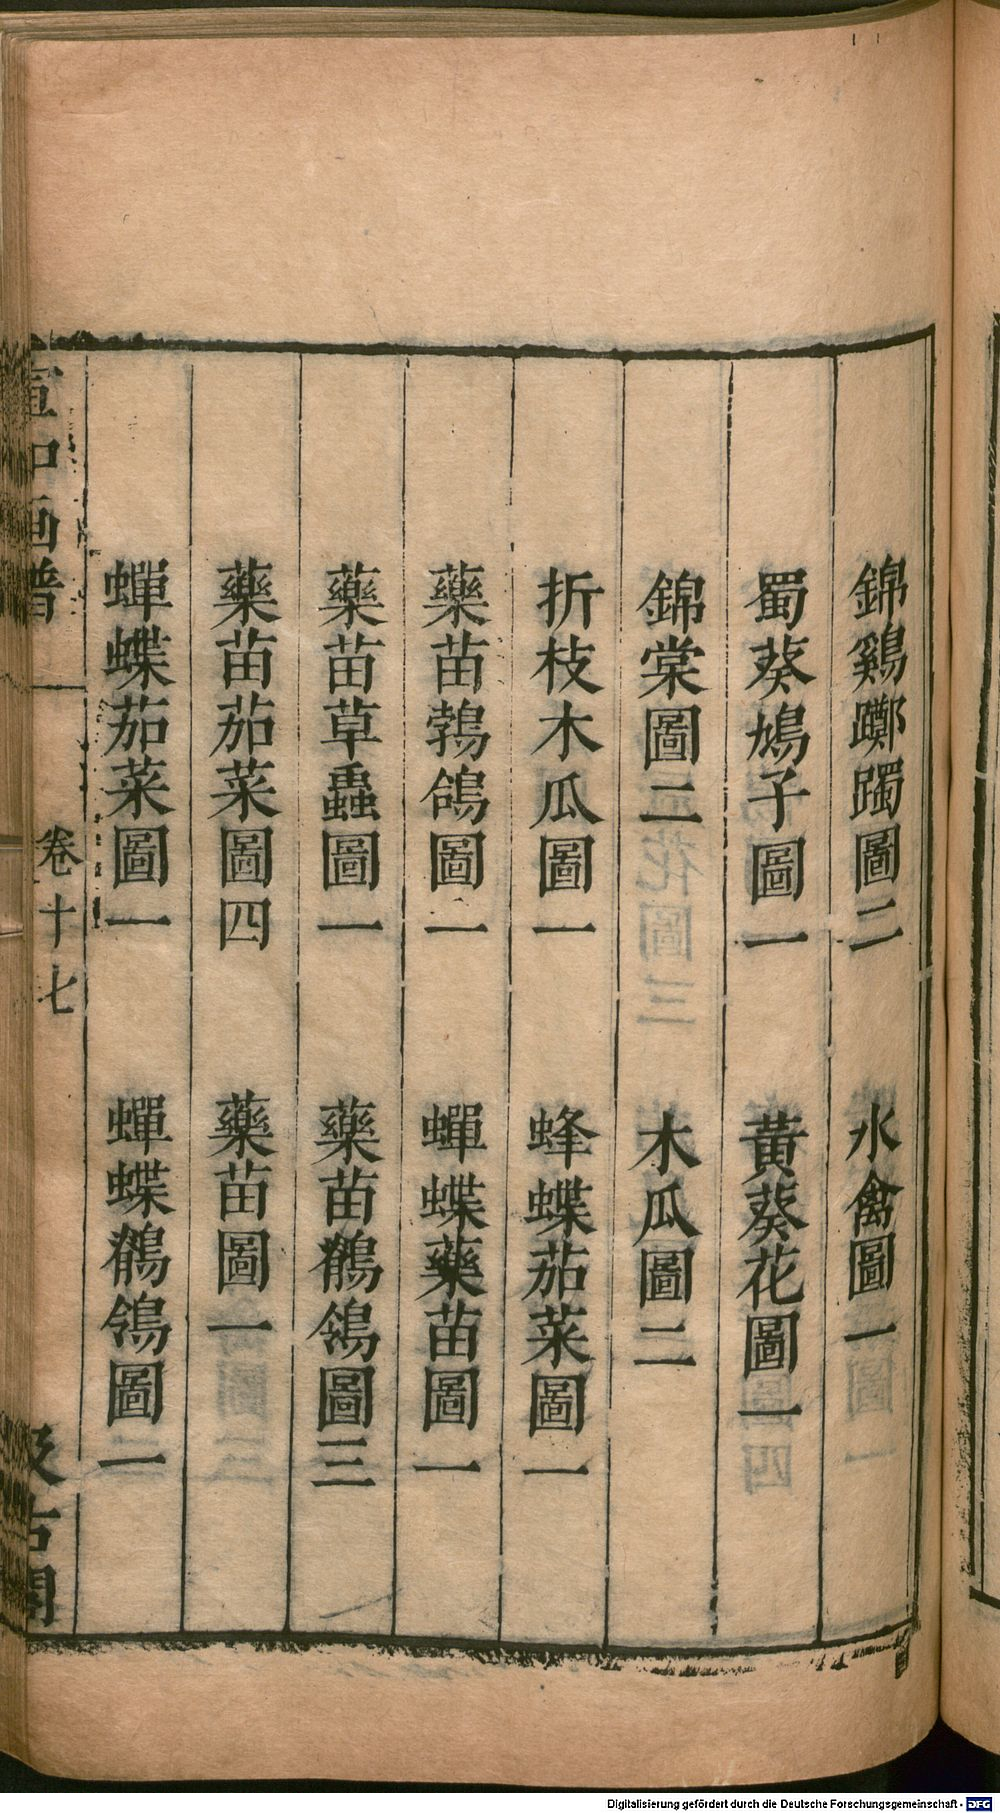 錦鷄躑躅圖二　水禽圖一
蜀葵鳩子圖一　黃葵花圖一
錦棠圖二　木瓜圖二
折枝木瓜圖一　蜂蝶茄菜圖一
藥苗鵓鴿圖一　蟬蝶藥苗圖一
藥苗草蟲圖一　藥苗鶺鴒圖三
藥苗茄菜圖四　藥苗圖一
蟬蝶茄菜圖一　蟬蝶鶺鴒圖二
宣和画譜　卷十七　汲古閣
Digitalisierung gefördert durch die Deutsche Forschungsgemeinschaft - DFG